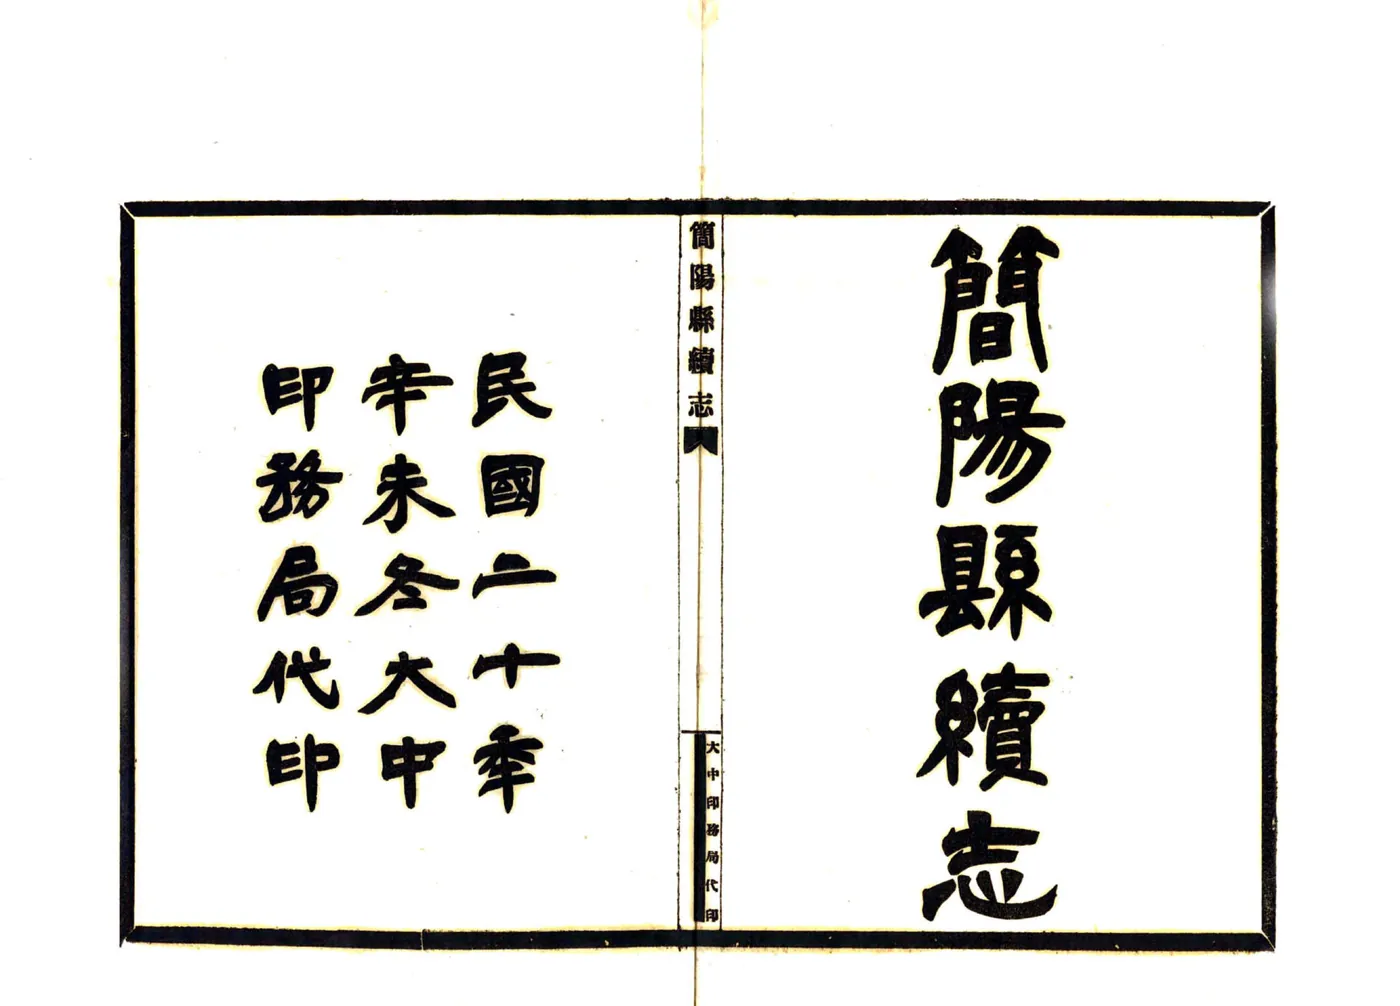 簡陽縣續志
簡陽縣續志
大中印務局代印
民國二十年
辛未冬大中
印務局代印